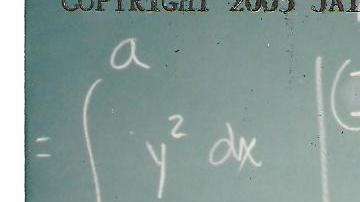 COPYRIGHT 2005 JAI
a
= ∫ y² dx | (